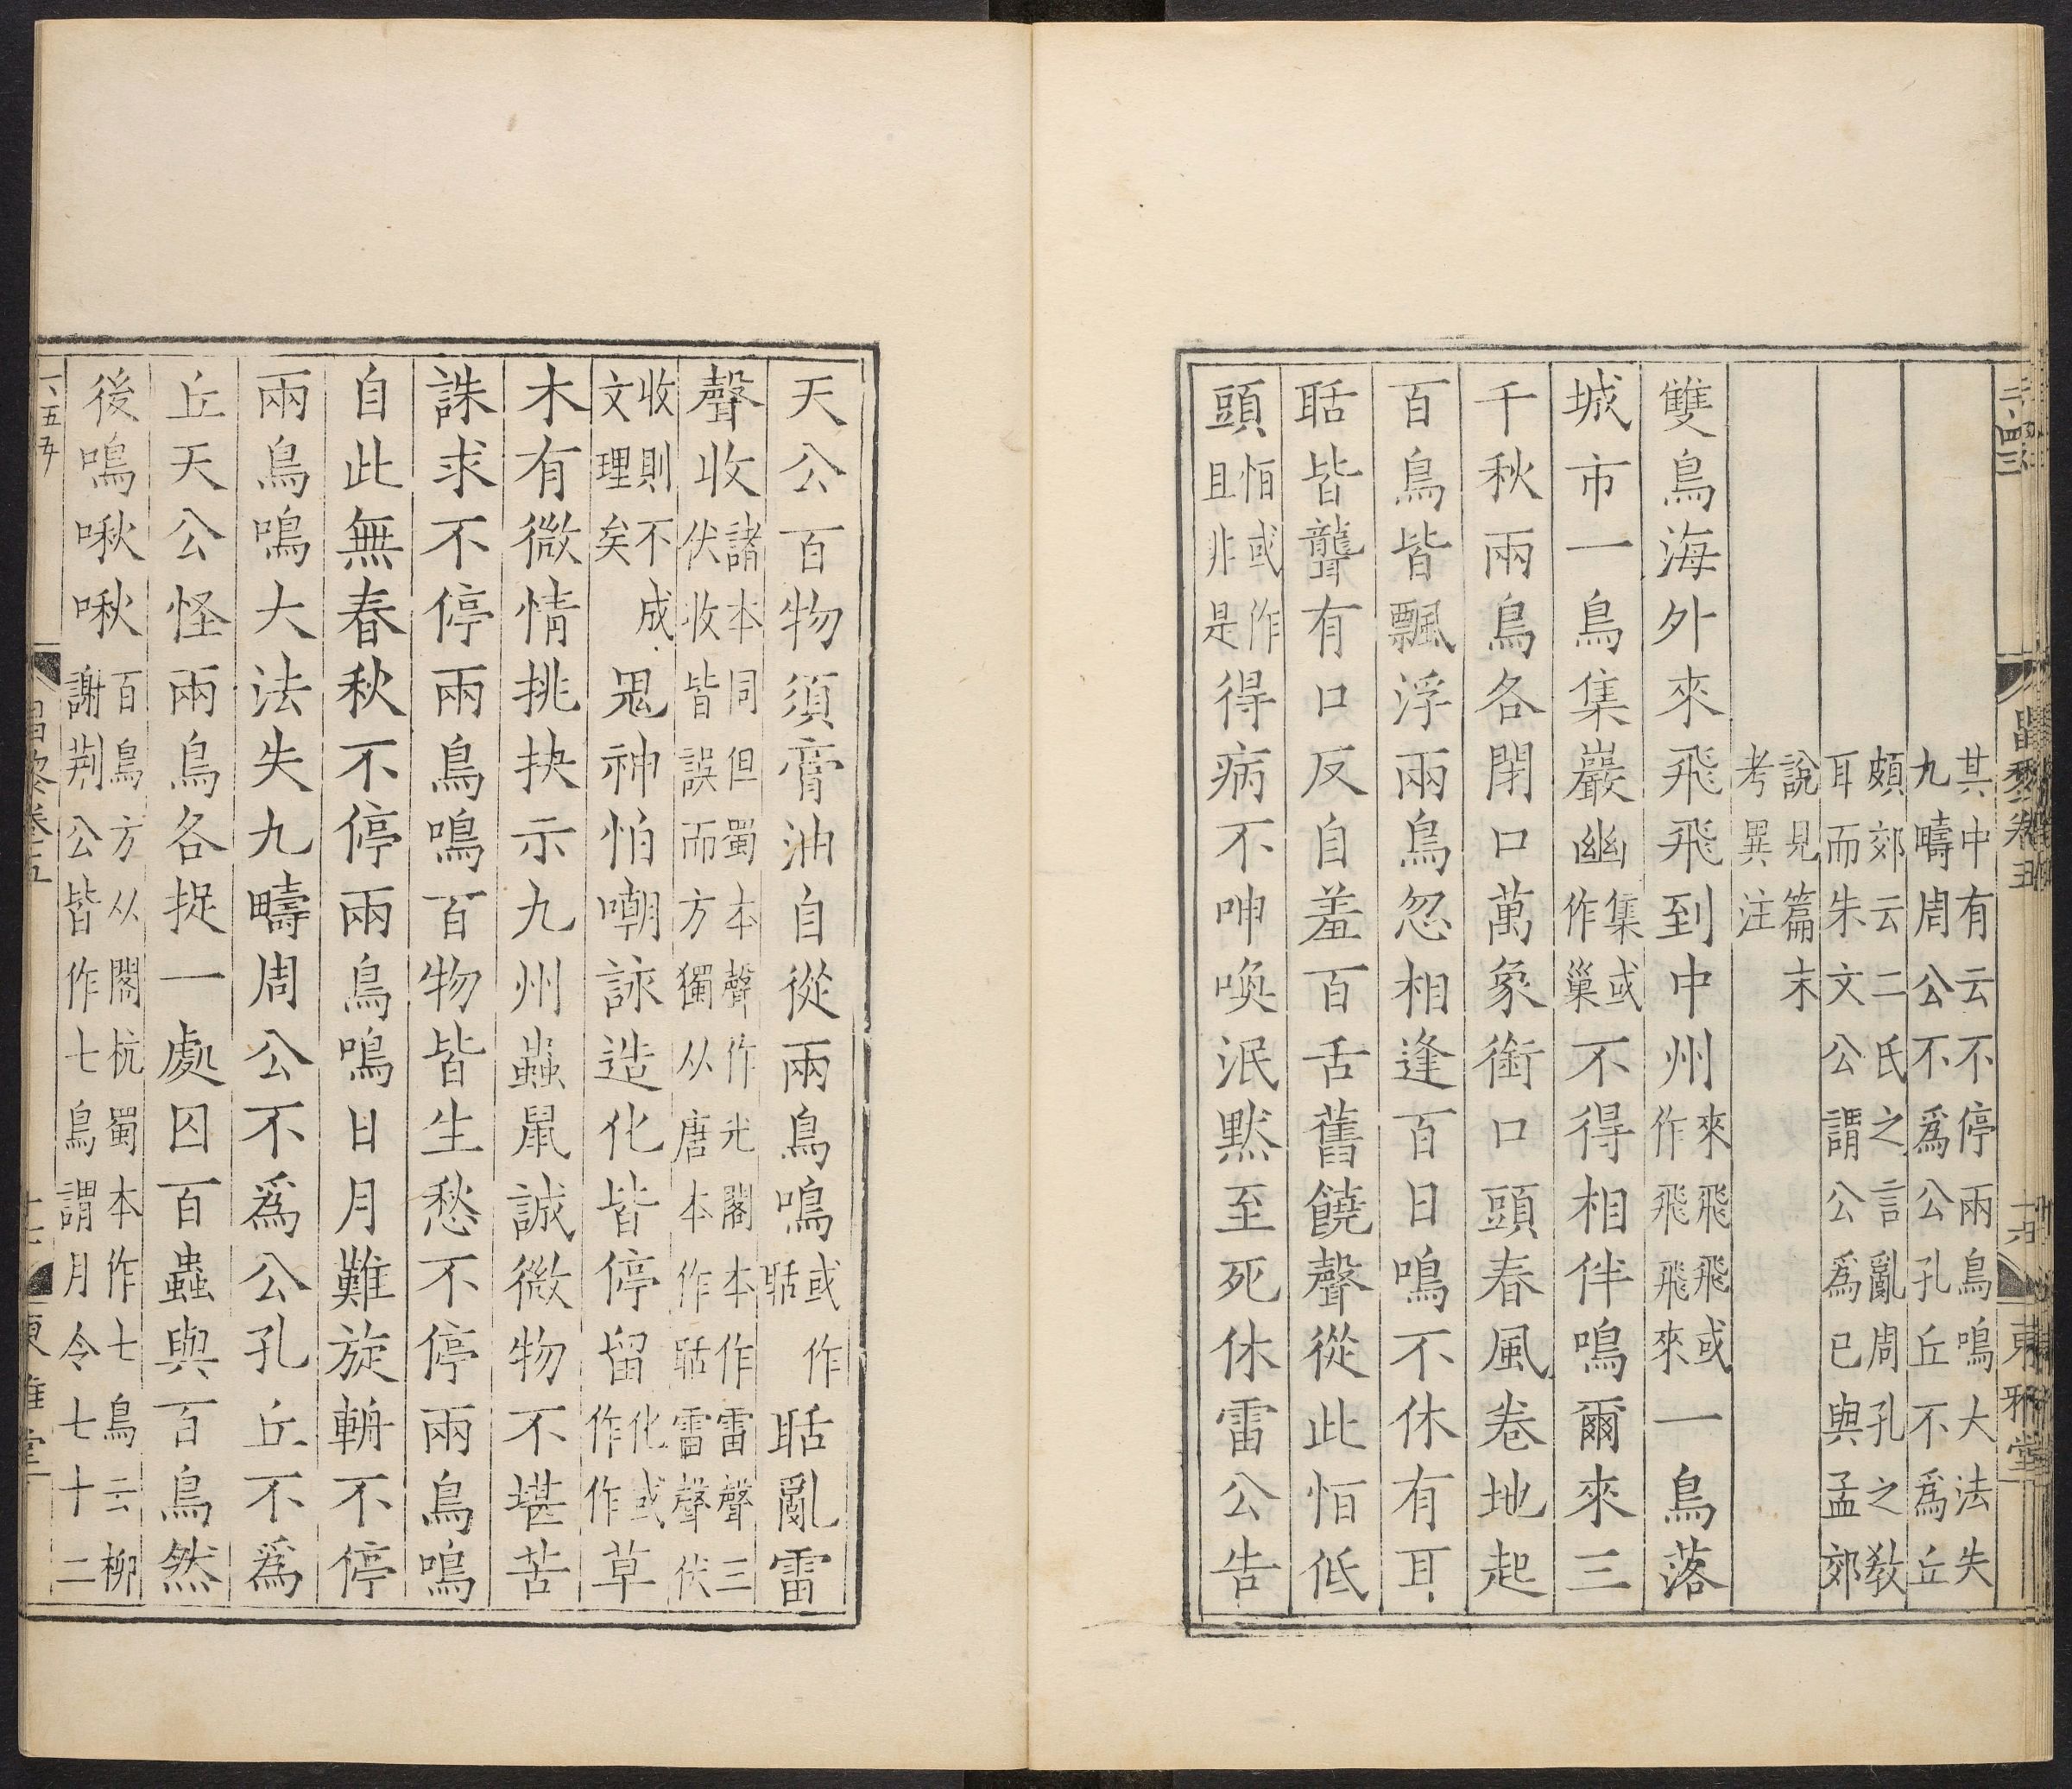 昌黎卷五 東雅堂
其中有云不停兩鳥鳴大法失
九疇周公不爲公孔丘不爲丘
頗郊云二氏之言亂周孔之敎
耳而朱文公謂公爲已與孟郊
說見篇末
考異注
雙鳥海外來飛飛到中州來飛飛或作飛飛來一鳥落
城市一鳥集巖幽集或作巢不得相伴鳴爾來三
千秋兩鳥各閉口萬象銜口頭春風卷地起
百鳥皆飄浮兩鳥忽相逢百日鳴不休有耳
聒皆聾有口反自羞百舌舊饒聲從此恒低
頭恒或作且非是得病不呻喚泯默至死休雷公告
天公百物須膏油自從兩鳥鳴或作聒聒亂雷
聲收諸本同但蜀本聲作光閣本作雷聲三伏收皆誤而方獨从唐本作聒雷聲伏
收則不成文理矣鬼神怕嘲詠造化皆停留化或作作草
木有微情挑抉示九州蟲鼠誠微物不堪苦
誅求不停兩鳥鳴百物皆生愁不停兩鳥鳴
自此無春秋不停兩鳥鳴日月難旋輈不停
兩鳥鳴大法失九疇周公不爲公孔丘不爲
丘天公怪兩鳥各捉一處囚百蟲與百鳥然
後鳴啾啾百鳥方从閣杭蜀本作七鳥云柳謝荆公皆作七鳥謂月令七十二
昌黎卷五 東雅堂